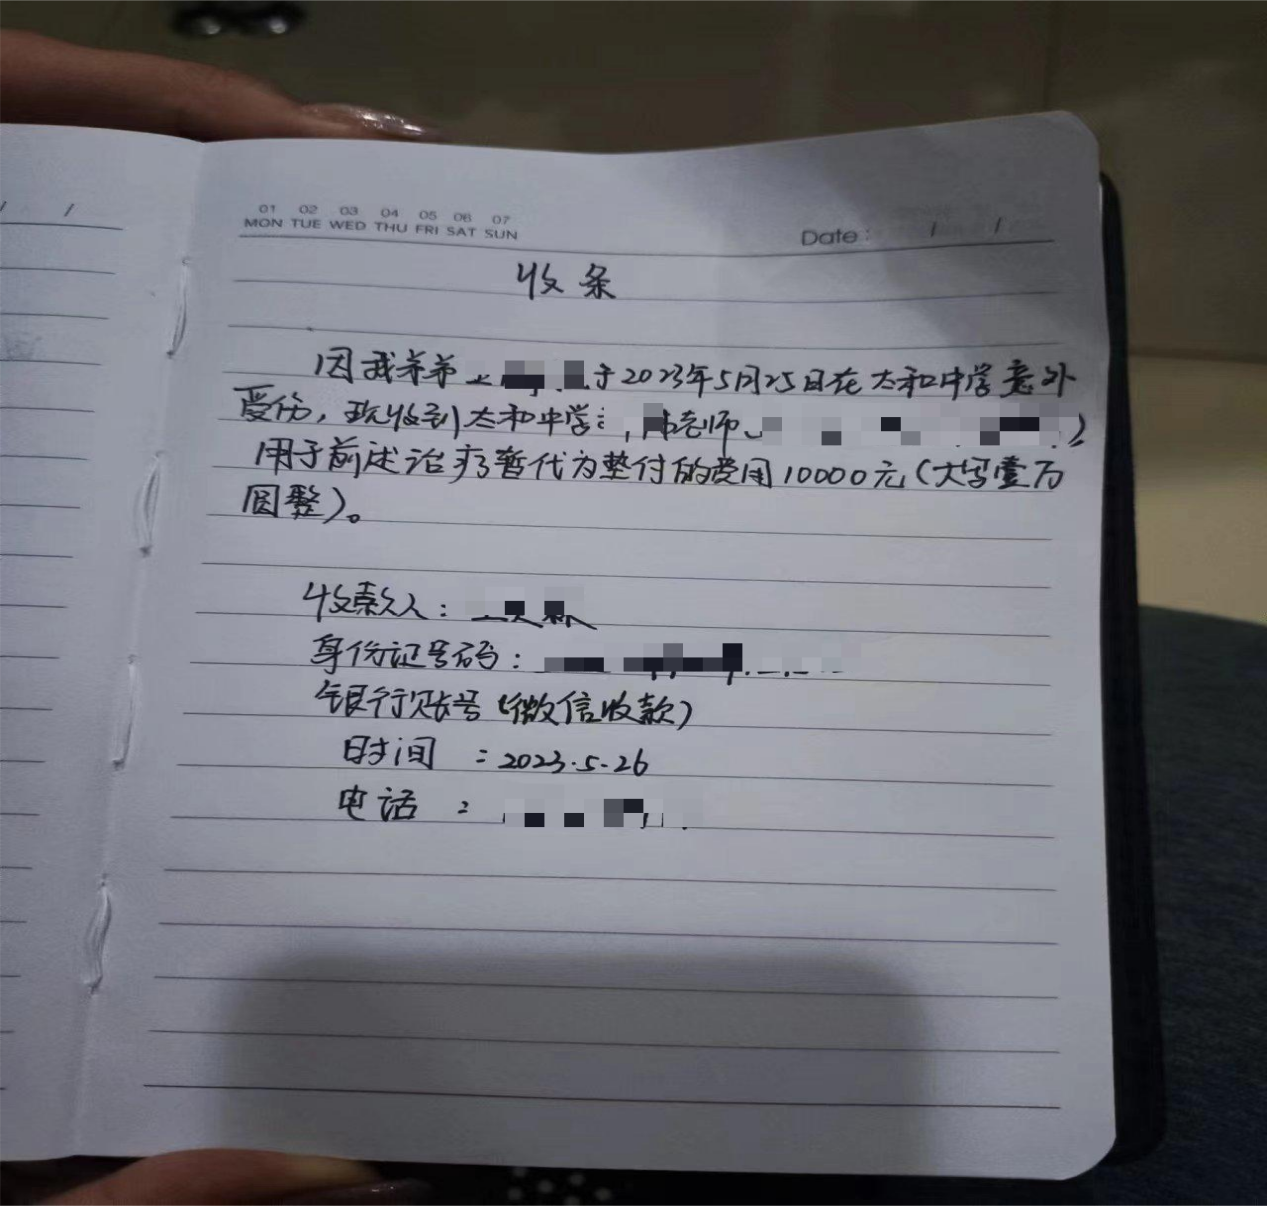 01 02 03 04 05 06 07
MON TUE WED THU FRI SAT SUN
Date: / /
收条
因我弟弟于2023年5月25日在太和中学意外
受伤,现收到太和中学 老师 )
用于前述治疗暂代为垫付的费用10000元(大写壹万
圆整)。
收款人:
身份证号码:
银行账号(微信收款)
时间:2023.5.26
电话: